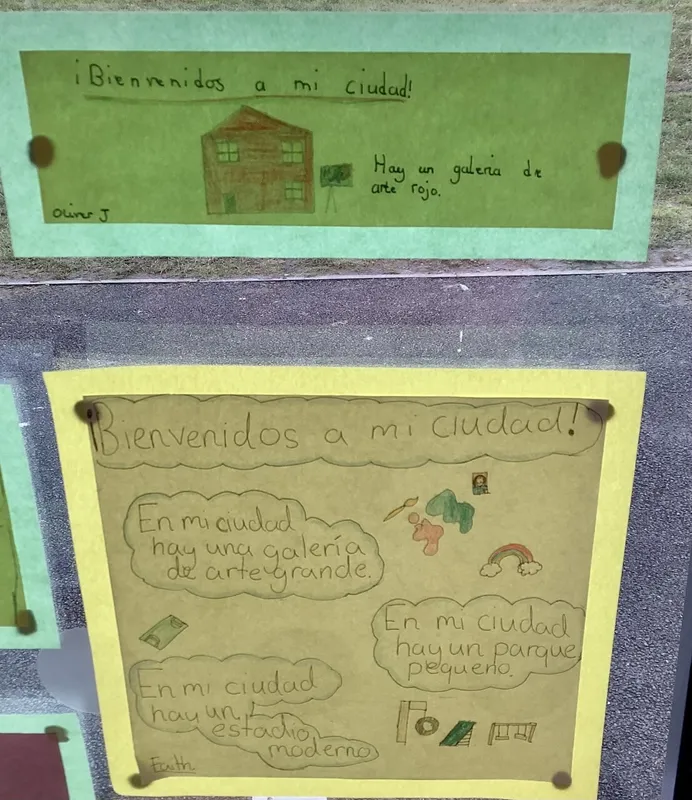 ¡Bienvenidos a mi ciudad!
Hay un galeria de
arte rojo.
Oliver J
¡Bienvenidos a mi ciudad!
En mi ciudad
hay una galería
de arte grande.
En mi ciudad
hay un parque
pequeno.
En mi ciudad
hay un
estadio
moderno
Faith